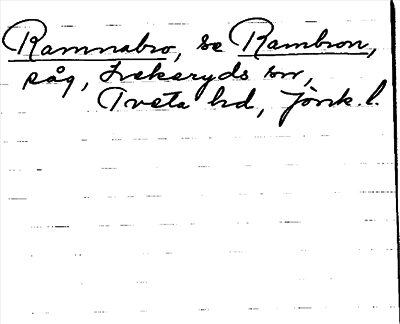 Ramnabro, se Rambron,
såg, Ivekaryds sn,
Tveta hd, Jönk. l.